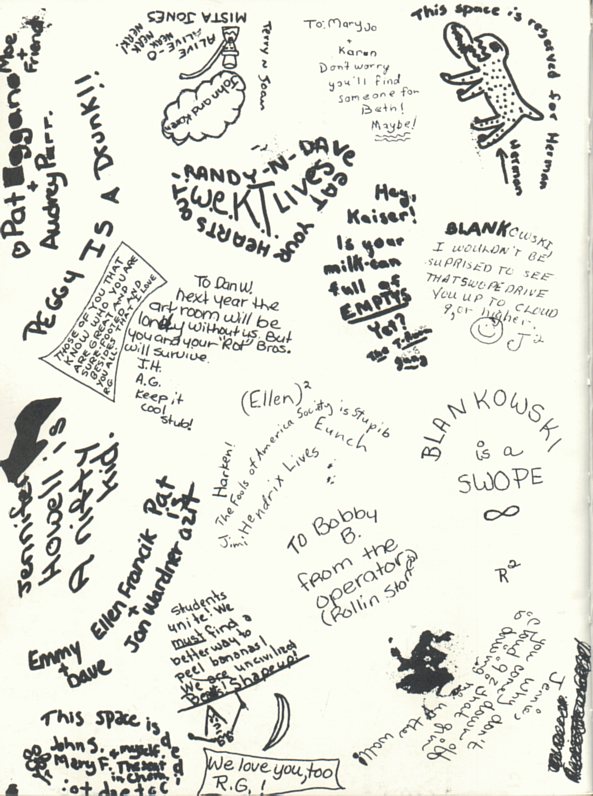 MISTA JONES
ALIVE-O
NEAK
NEAK
NEAK!
Terry N Joan
John and Karen
To: Mary Jo
+
Karen
Don't worry
you'll find
someone for
Beth!
Maybe!
This space is reserved for Herman
Herman
Moe
+
Friend
Pat Eggano
+
Audrey Parr.
PEGGY IS A DRUNK!!
RANDY-N-DAVE
EAT YOUR HEARTS OUT
WEKJT LIVES
Hey,
Kaiser!
Is your
milk-can
full of
EMPTYS
Yet?
The T-Bird
gang
BLANKOWSKI
I WOULDN'T BE
SUPRISED TO SEE
THAT SWOPE DRIVE
YOU UP TO CLOUD
9, or higher.
J²
THOSE OF YOU THAT
KNOW WHO YOU ARE
ARE GREAT AND YOUR
SURE-FOOTED AND
BESIDES THAT I LOVE
YOU ALL!
R.G.
To Dan W!
next year the
art room will be
lonely without us. But
you and your "Rot" Bros.
will survive.
J.H.
A.G.
Keep it
cool
Stub!
(Ellen)²
Harken!
The Fools of America Society is Stupib
Eunch
Jimi Hendrix Lives
BLANKOWSKI
is a
SWOPE
∞
R²
Jennifer
Howell is
A nifty
kid.
Pat
is
Ellen Francik
+
Jan Wardner
Emmy
+
Dave
TO Bobby
B.
from the
operator
(Rollin Stones)
Students
unite! We
must find a
better way to
peel bananas!
We are uncivilized
Shape up!
Jennie
you why don't
the wall
This space is
John S. + myself.
Mary F. The seat
in Chem,
We love you, too
R.G.!